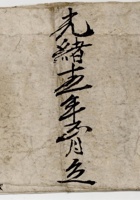 光緒十五年二月立